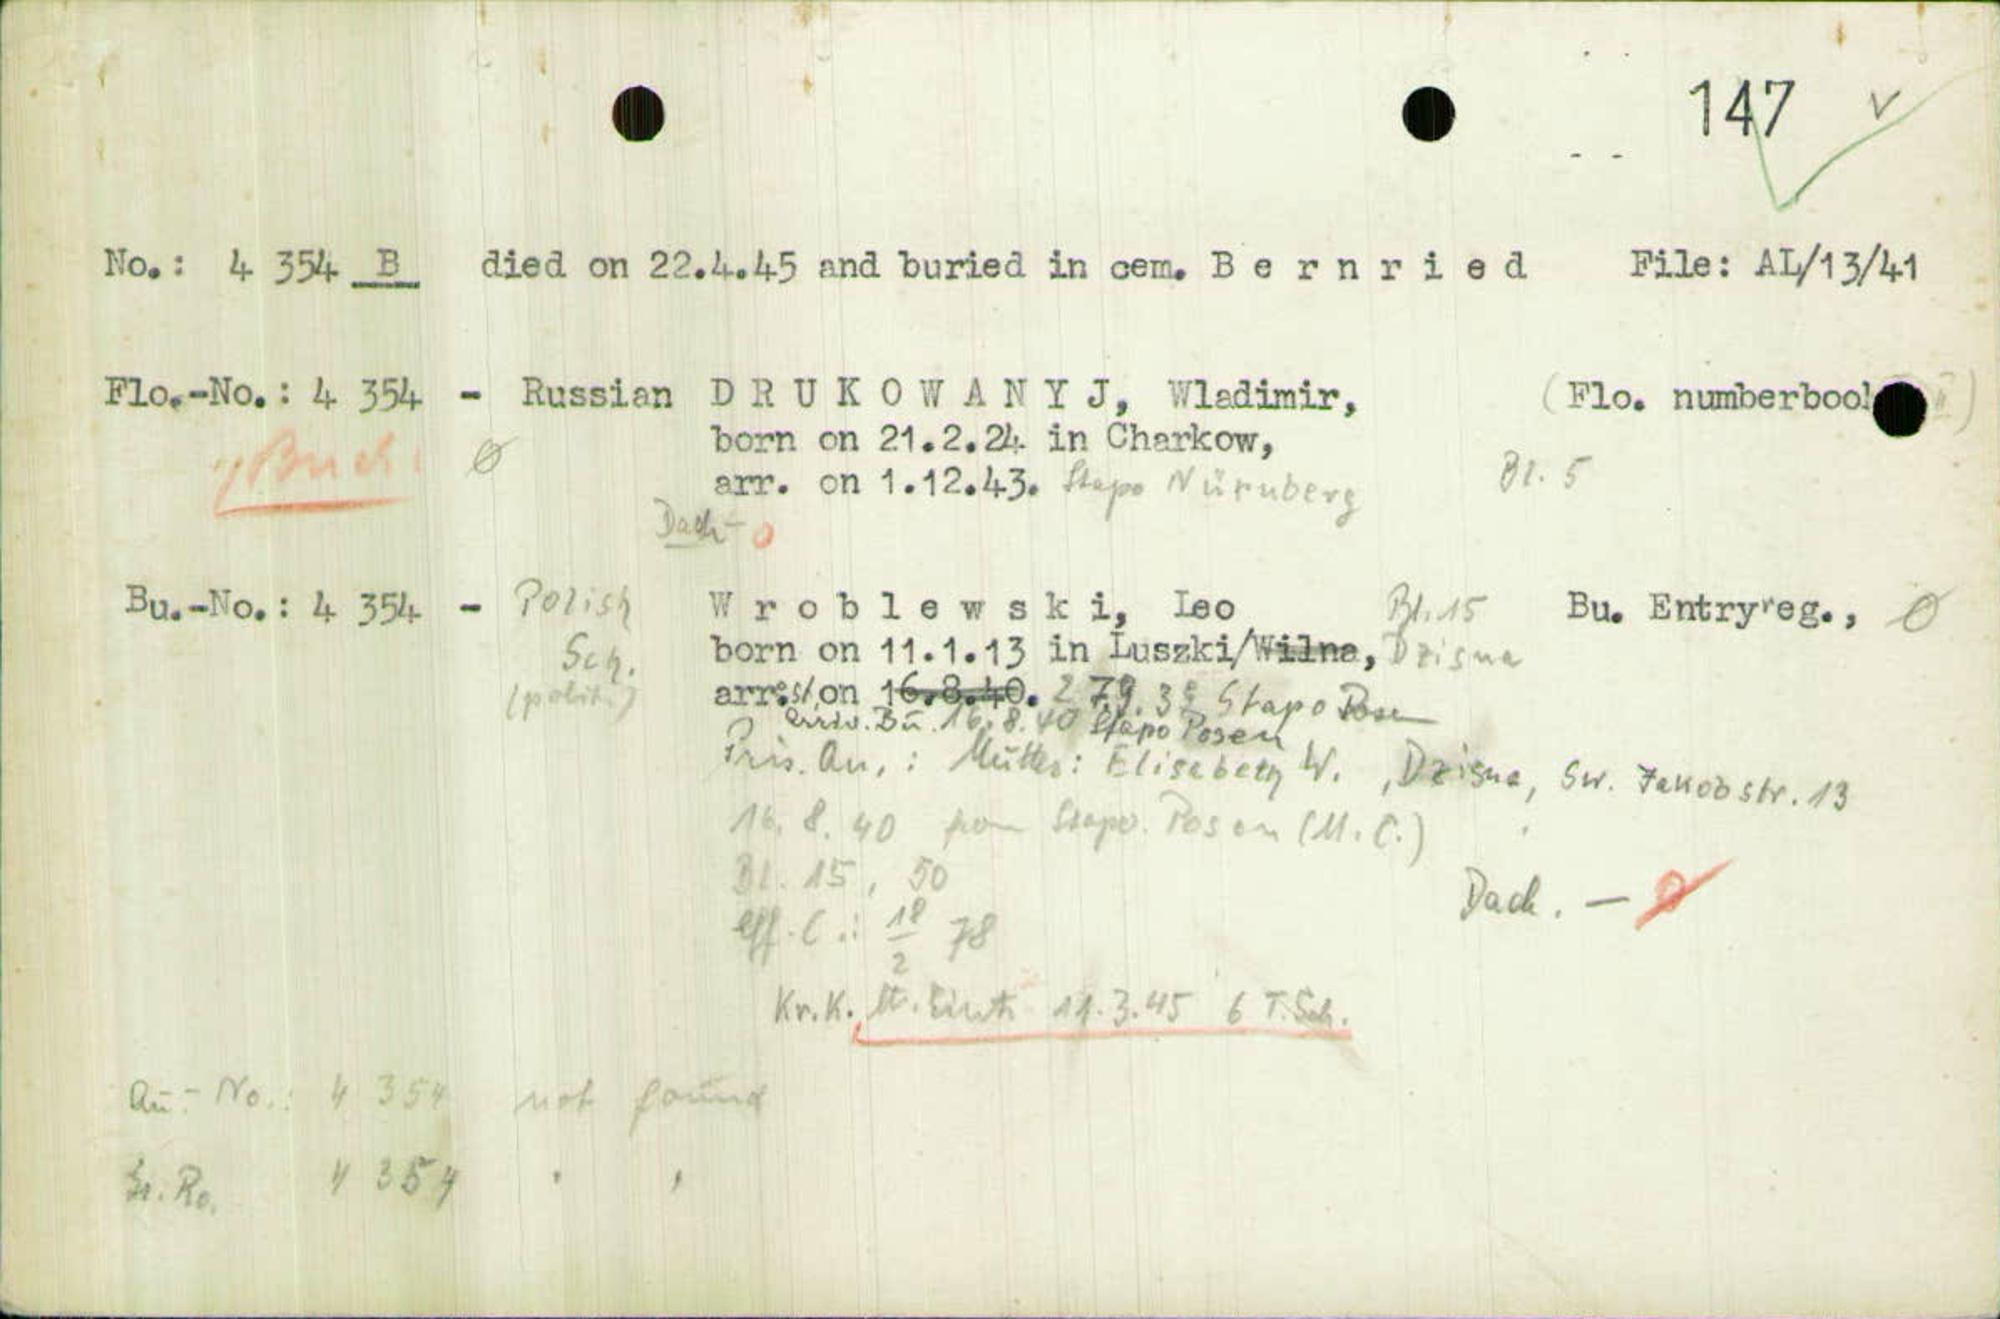 147 v
No.: 4 354 B died on 22.4.45 and buried in cem. B e r n r i e d File: AL/13/41
Flo.-No.: 4 354 - Russian D R U K O W A N Y J, Wladimir, (Flo. numberbook
Buch. Ø born on 21.2.24 in Charkow,
arr. on 1.12.43. Stapo Nürnberg Bl. 5
Dach - 0
Bu.-No.: 4 354 - Polish W r o b l e w s k i, Leo Bl. 15 Bu. Entryreg., Ø
Sch. born on 11.1.13 in Luszki/Wilna, Dzisna
(polit.) arrest. on 16.8.40. Stapo Posen
arriv. Bu. 16.8.40 Stapo Posen
Pris. Qu, : Mutter: Elisabeth W. , Dzisna, Sw. Jakobstr. 13
16. 8. 40 from Stapo. Posen (M. C.)
Bl. 15, 50
Dach. - 0
eff. C.: 18/2 78
Kr.K. 11.3.45 6 T. Sch.
Au.- No.: 4 354 not found
Gr. Ro. 4 354 " "